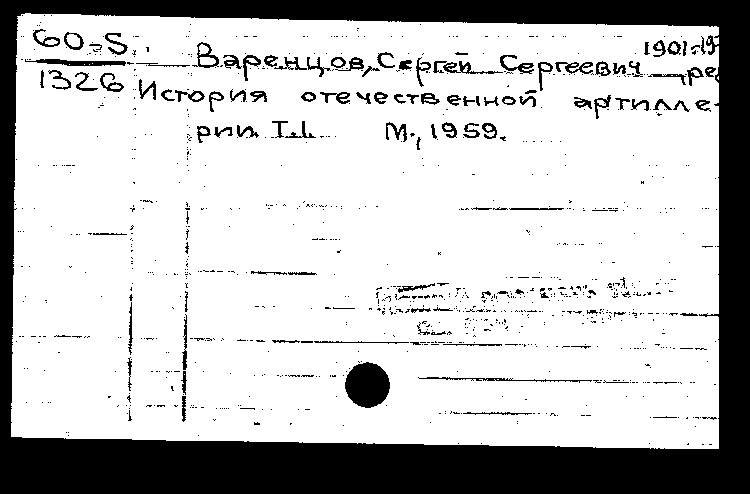 60-5
1326
1901-19
Варенцов, Сергей Сергеевич, ре
История отечественной артилле-
рии. Т.1. М., 1959.